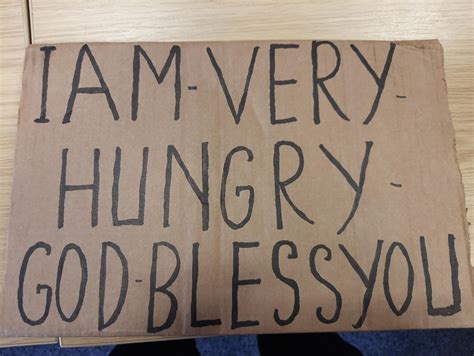 I AM-VERY-
HUNGRY-
GOD-BLESS YOU